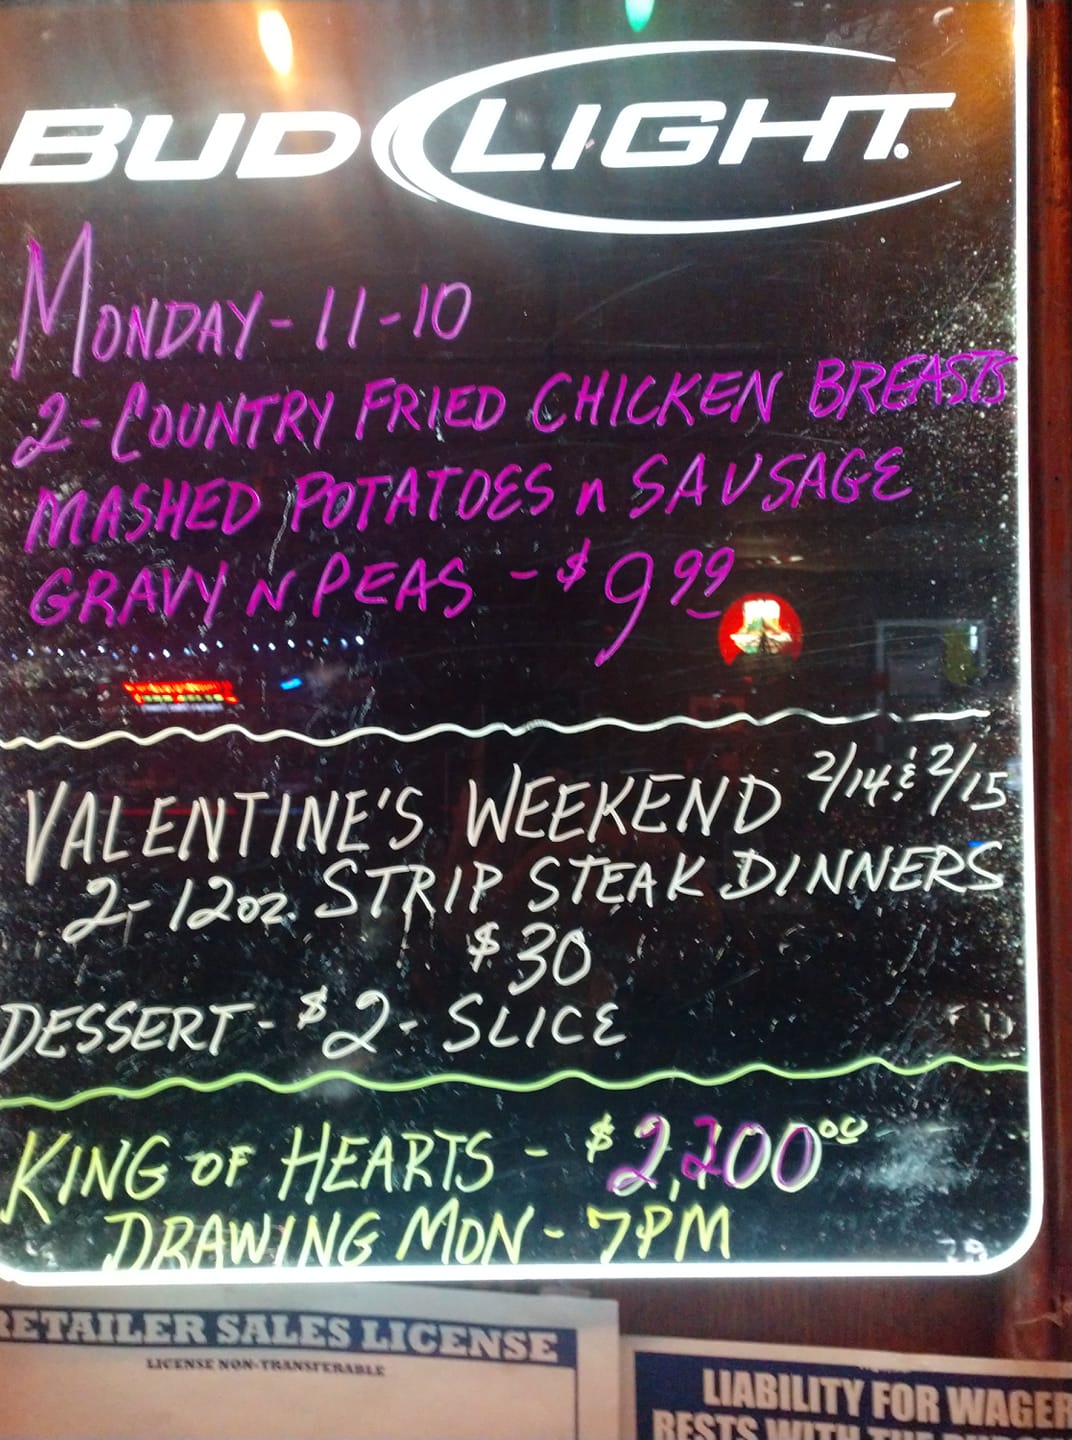 BUD LIGHT.
MONDAY - 11-10
2- COUNTRY FRIED CHICKEN BREASTS
MASHED POTATOES n SAUSAGE
GRAVY N PEAS - $9.99
VALENTINE'S WEEKEND 2/14 & 2/15
2- 12oz. STRIP STEAK DINNERS
$30
DESSERT - $2 - SLICE
KING OF HEARTS - $2,200.00
DRAWING MON - 7PM
RETAILER SALES LICENSE
LICENSE NON-TRANSFERABLE
LIABILITY FOR WAGER
RESTS WITH THE